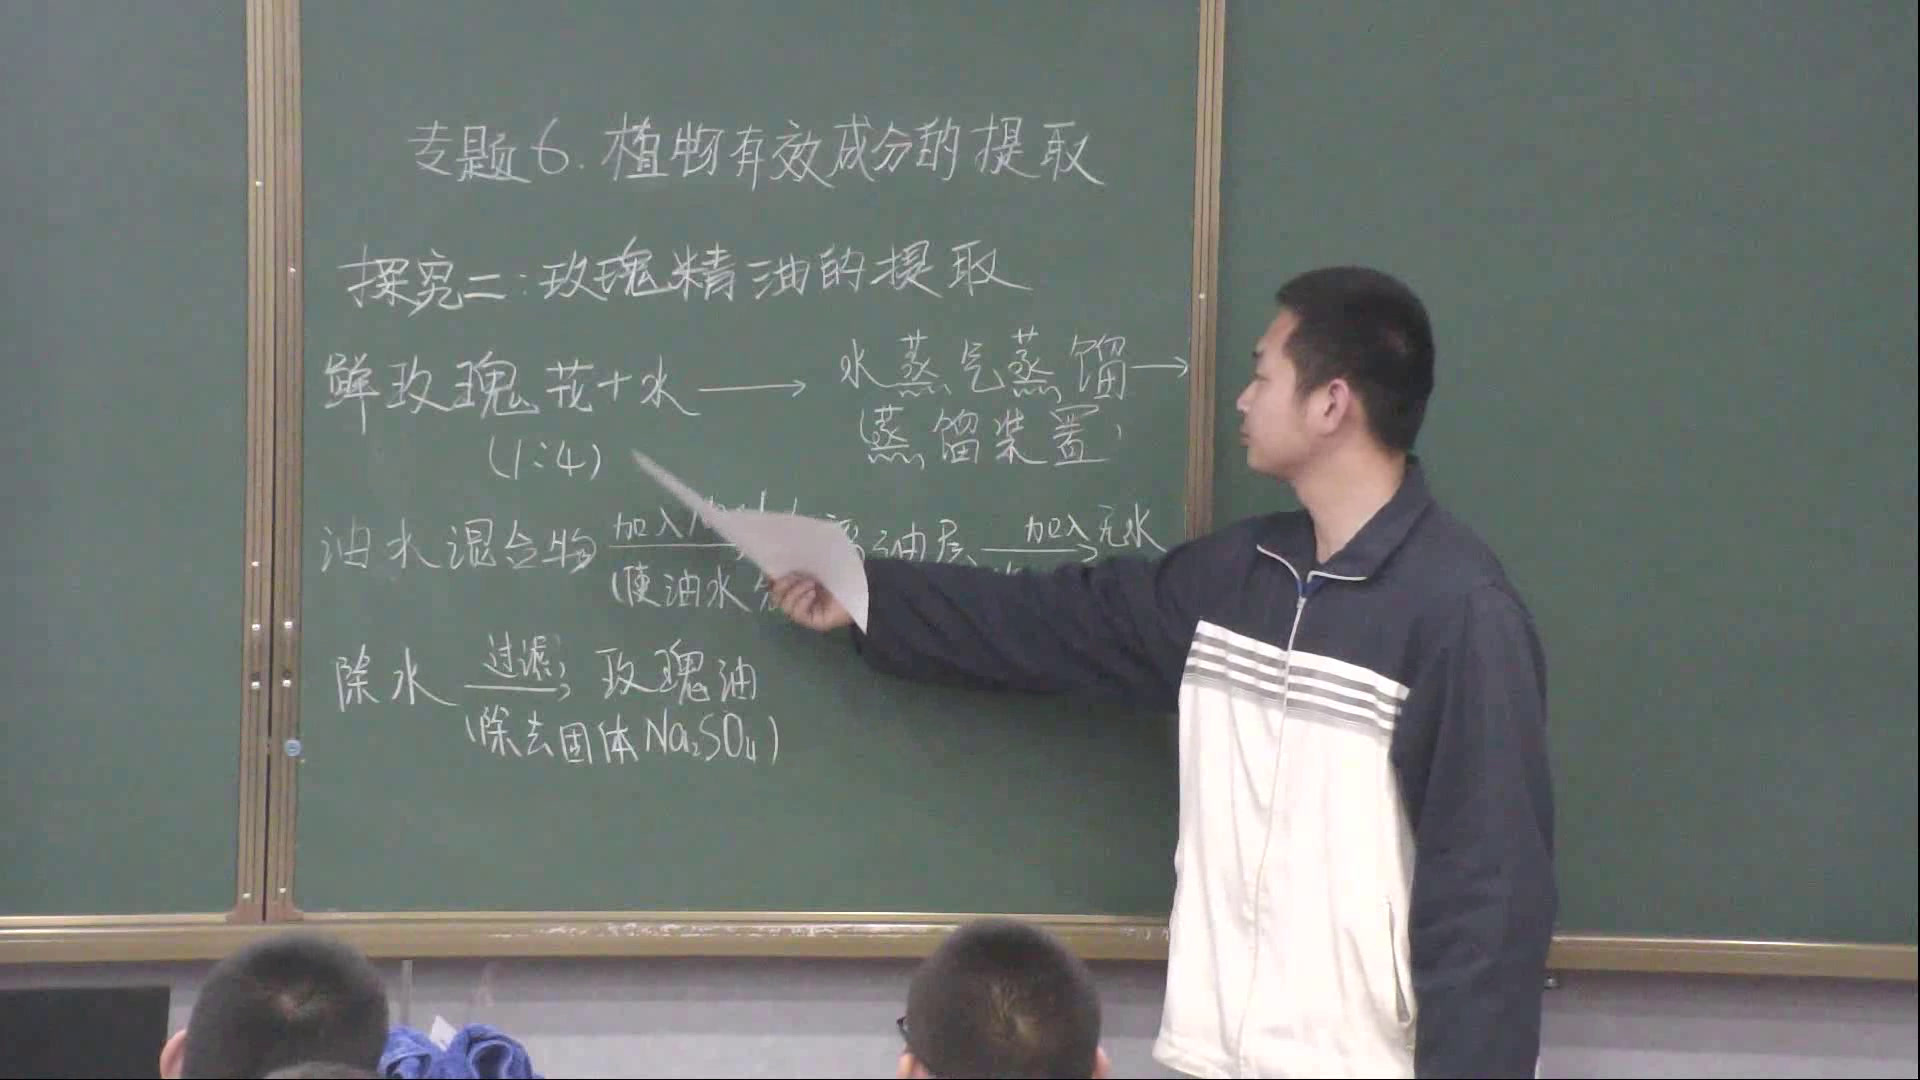 专题6.植物有效成分的提取
探究二:玫瑰精油的提取
鲜玫瑰花+水 → 水蒸气蒸馏 →
(1:4) (蒸馏装置)
加入 加入无水
油水混合物 → 油层 →
(使油水分
过滤
除水 → 玫瑰油
(除去固体Na₂SO₄)